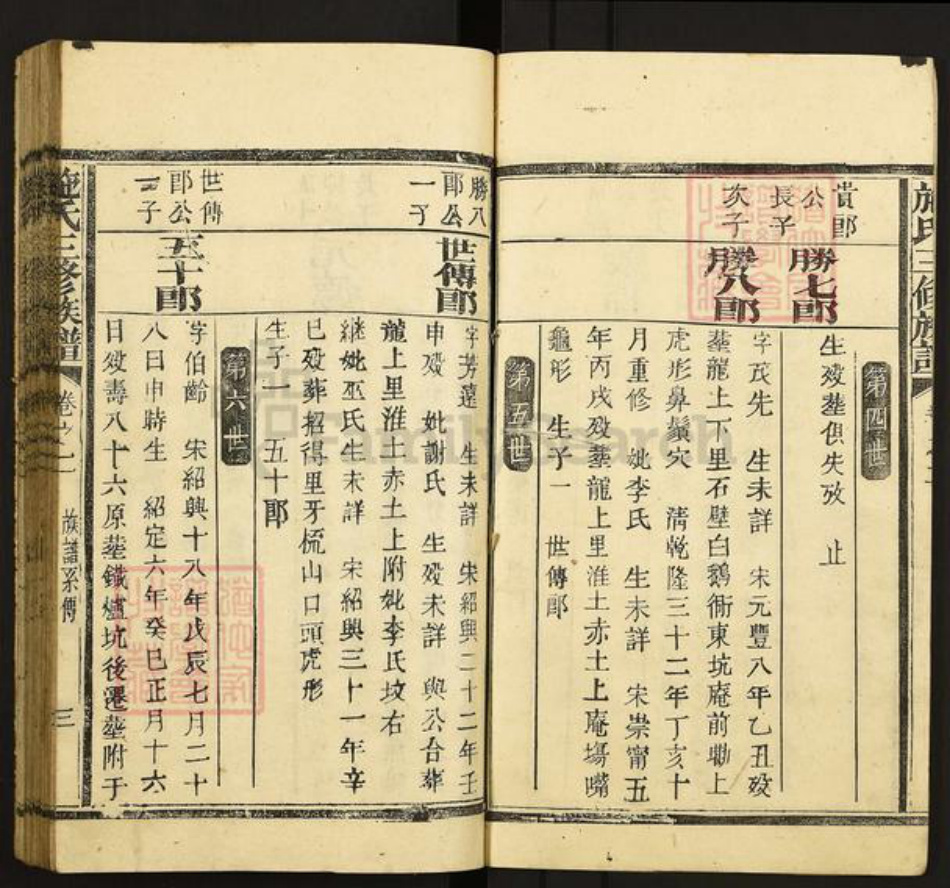 施氏三修族譜
第四世
貴郎
公
長子
勝七郎
生歿塟俱失攷 止
次子
勝八郎
字茂先 生未詳 宋元豐八年乙丑歿
塟龍上下里石壁白鵝衕東坑庵前坳上
虎形鼻鬚穴 清乾隆三十二年丁亥十
月重修 妣李氏 生未詳 宋崇甯五
年丙戌歿塟龍上里淮土赤土上庵塲嘴
龜形 生子一 世傳郎
第五世
勝八
郎公
一子
世傳郎
字芳遠 生未詳 宋紹興二十二年壬
申歿 妣謝氏 生歿未詳 與公合葬
龍上里淮土赤土上附妣李氏坟右
継妣巫氏生未詳 宋紹興三十一年辛
巳歿葬招得里牙梳山口頭虎形
生子一 五十郎
第六世
世傳
郎公
一子
五十郎
字伯齡 宋紹興十八年戊辰七月二十
八日申時生 紹定六年癸巳正月十六
日歿壽八十六原塟鐵爐坑後遷塟附于
施氏三修族譜
卷之二
族譜系傳
三
FamilySearch